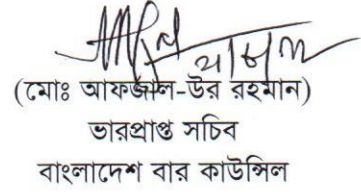 (মোঃ আফজাল-উর রহমান)
ভারপ্রাপ্ত সচিব
বাংলাদেশ বার কাউন্সিল